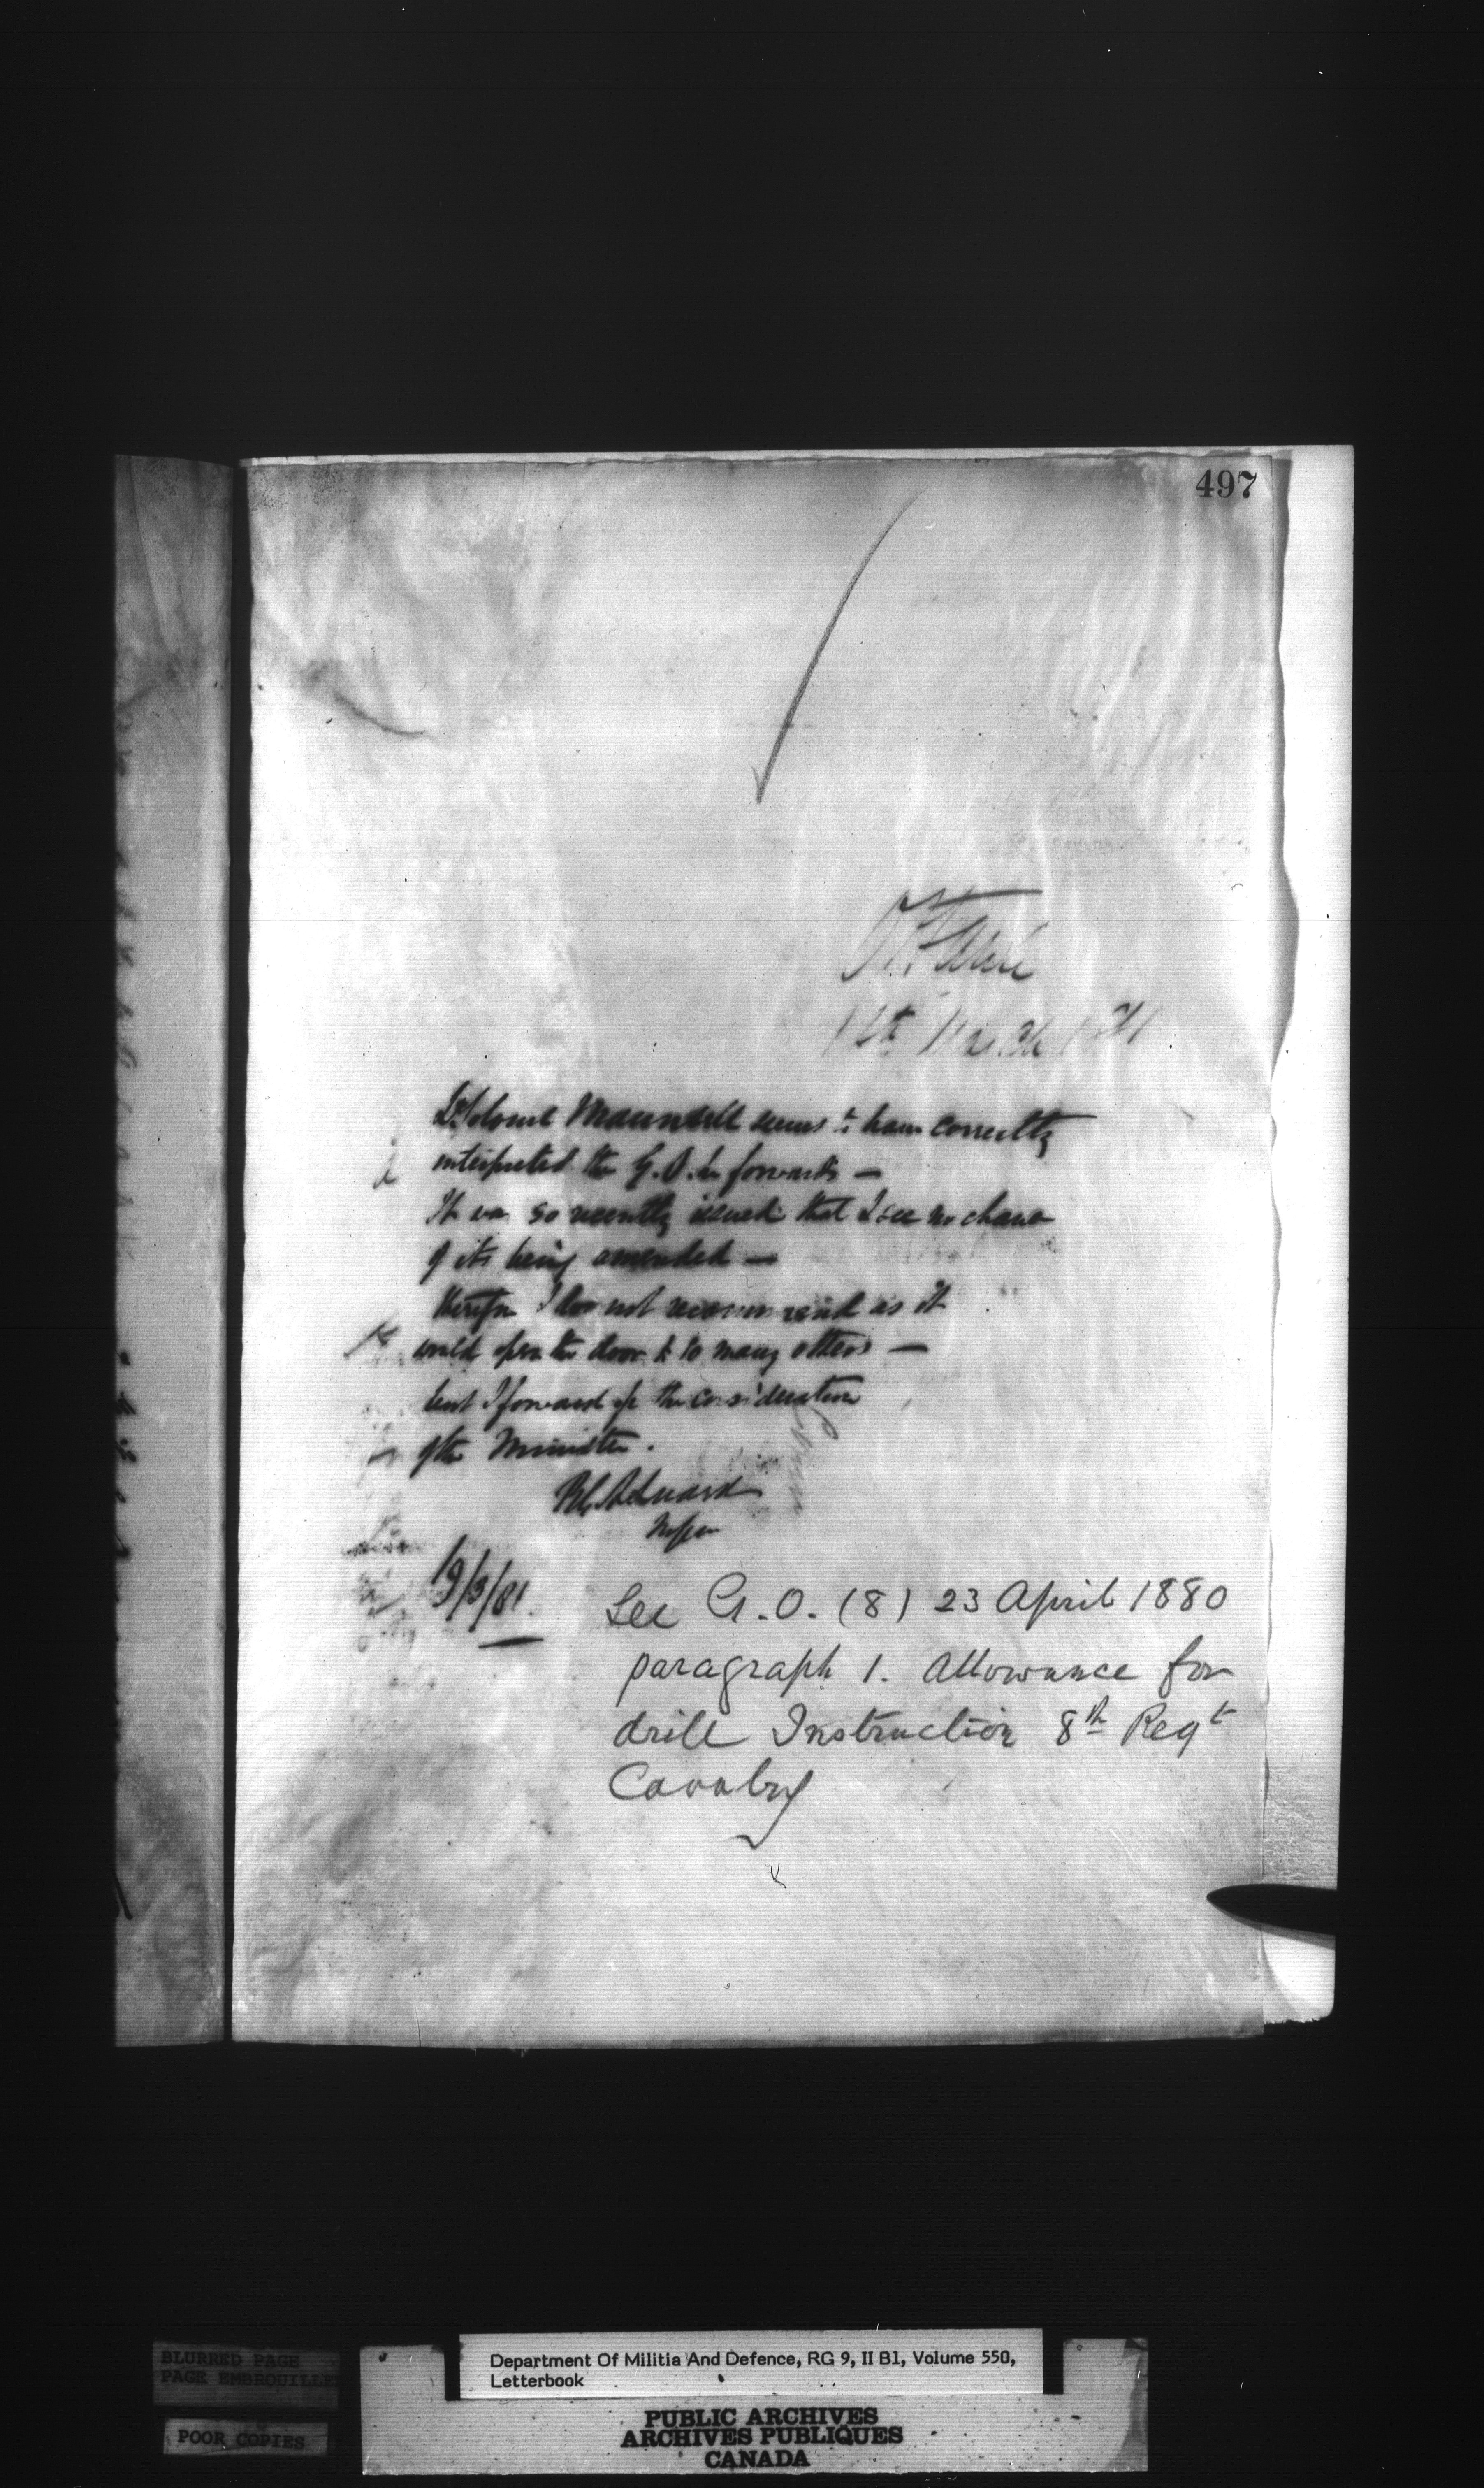 497
12th March / 81
Lt Colonel Maunsell seems to have correctly
interpreted the G.O. he forwards —
It was so recently issued that I see no chance
of its being amended —
Therefore I do not recommend as it
would open the door to so many others —
but I forward for the consideration
of the Minister.
19/3/81.
See G.O. (8) 23 April 1880
paragraph 1. Allowance for
drill Instruction 8th Regt
Cavalry
BLURRED PAGE
PAGE EMBROUILLEE
POOR COPIES
Department Of Militia And Defence, RG 9, II B1, Volume 550,
Letterbook
PUBLIC ARCHIVES
ARCHIVES PUBLIQUES
CANADA